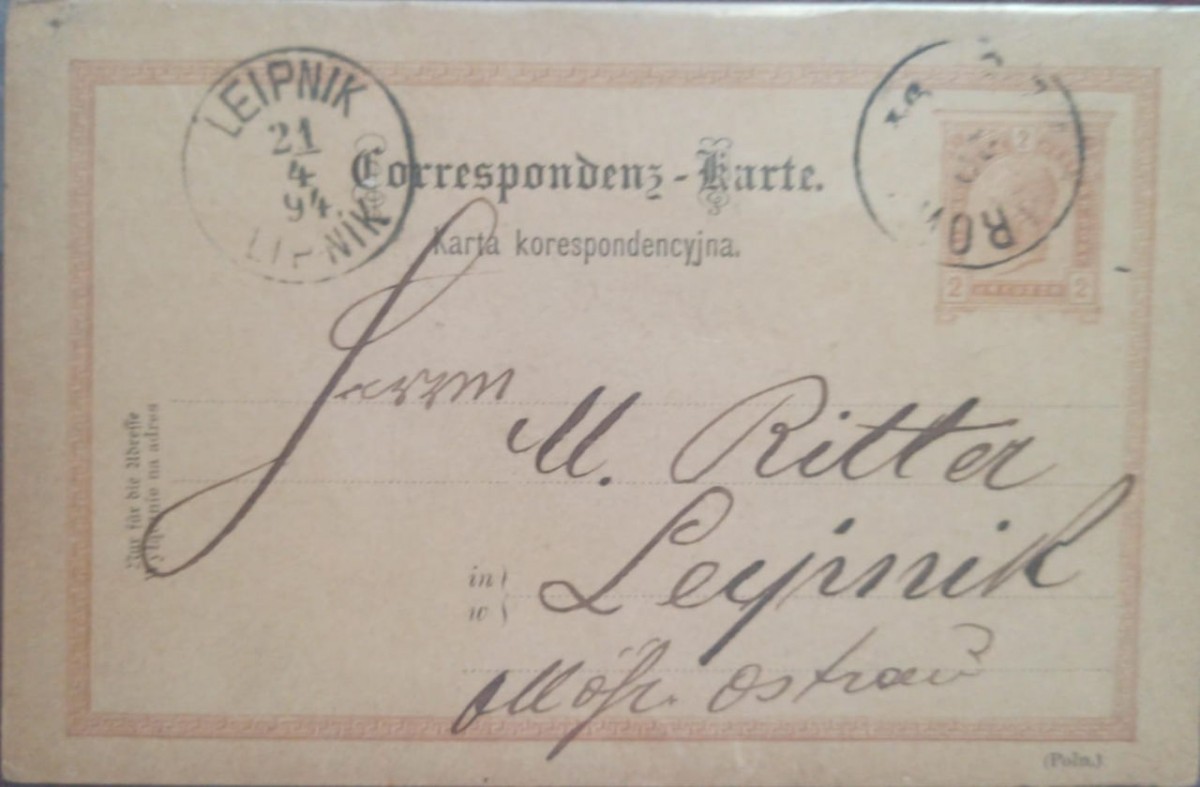 LEIPNIK
21
4
94
LIPNIK
Correspondenz-Karte.
Karta korespondencyjna.
2
2 2
Nur für die Adresse
Wyłącznie na adres
Herrn
M. Ritter
in
w
Leipnik
Mähr. Ostrau
(Poln.)